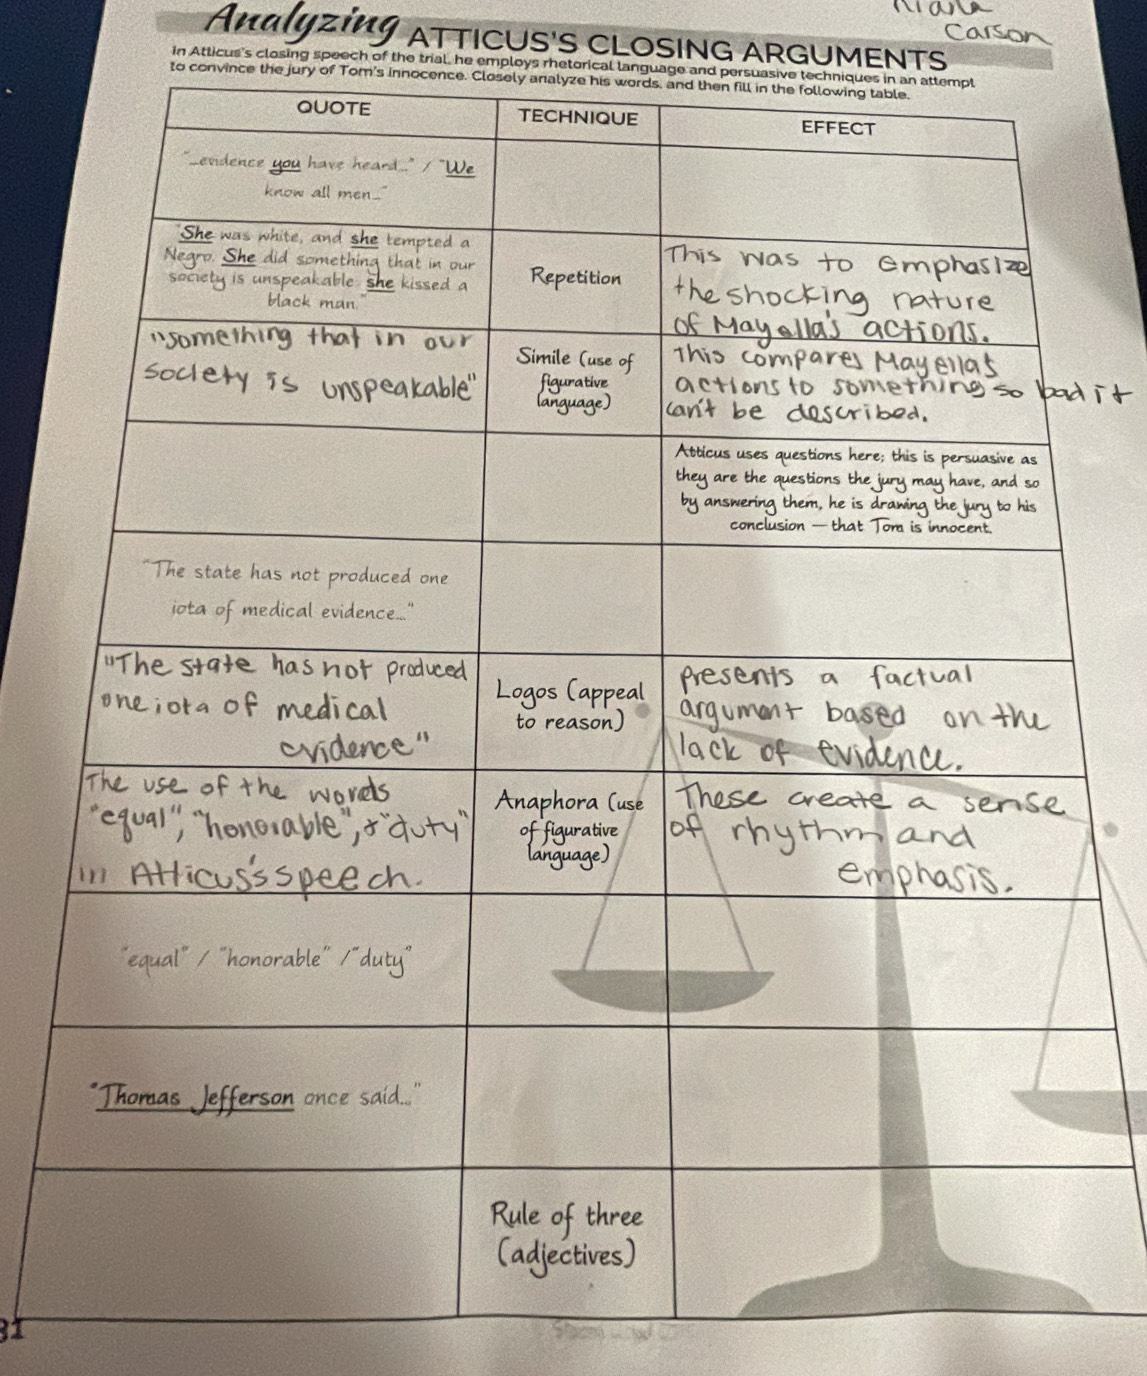 Carson
Analyzing ATTICUS'S CLOSING ARGUMENTS
In Atticus's closing speech of the trial, he employs rhetorical language and persuasive techniques in an attempt
to convince the jury of Tom's innocence. Closely analyze his words, and then fill in the following table.
QUOTE
TECHNIQUE
EFFECT
"...evidence you have heard..." / "We
know all men..."
"She was white, and she tempted a
Negro. She did something that in our
society is unspeakable: she kissed a
black man."
Repetition
This was to emphasize
the shocking nature
of Mayella's actions.
"something that in our
society is unspeakable"
Simile (use of
figurative
language)
This compares Mayella's
actions to something so bad it
can't be described.
Atticus uses questions here; this is persuasive as
they are the questions the jury may have, and so
by answering them, he is drawing the jury to his
conclusion – that Tom is innocent.
"The state has not produced one
iota of medical evidence..."
"The state has not produced
one iota of medical
evidence"
Logos (appeal
to reason)
presents a factual
argument based on the
lack of evidence.
The use of the words
"equal", "honorable", & "duty"
in Atticus's speech.
Anaphora (use
of figurative
language)
These create a sense
of rhythm and
emphasis.
"equal" / "honorable" / "duty"
"Thomas Jefferson once said..."
Rule of three
(adjectives)
31